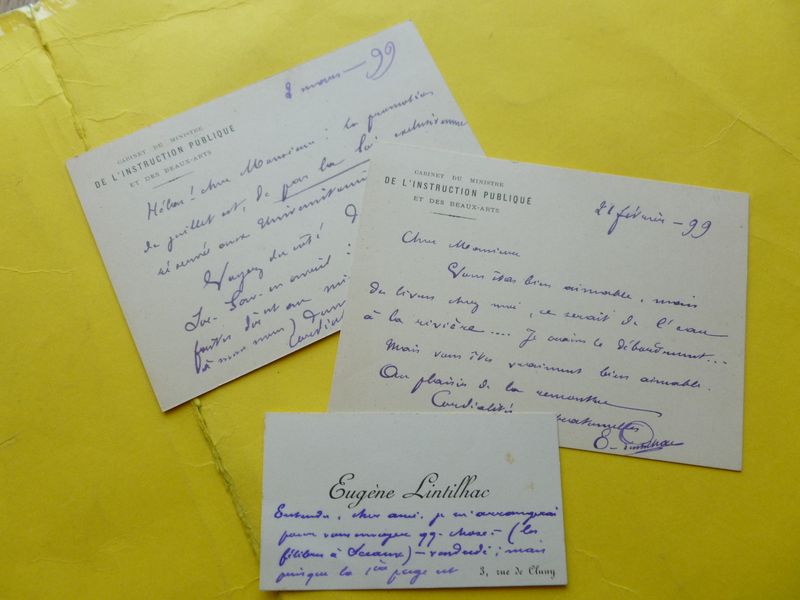 8 mars — 99
CABINET DU MINISTRE
DE L'INSTRUCTION PUBLIQUE
ET DES BEAUX-ARTS
Hélas! cher Monsieur: la promotion
de juillet est, de par la loi exclusivement
réservée aux Universitaires
Voyez du côté
à mon nom)
CABINET DU MINISTRE
DE L'INSTRUCTION PUBLIQUE
ET DES BEAUX-ARTS
21 février — 99
Cher Monsieur
Vous êtes bien aimable, mais
des livres chez moi, ce serait de l'eau
à la rivière.... Je crains le débordement...
Mais vous êtes vraiment bien aimable.
Au plaisir de la rencontre
Cordialités
E. Lintilhac
Eugène Lintilhac
Entendu, cher ami. je m'arrangerai
pour vous envoyer qq. chose — (les
félibres à Sceaux) — vendredi; mais
puisque la 1ère page est
3, rue de Cluny